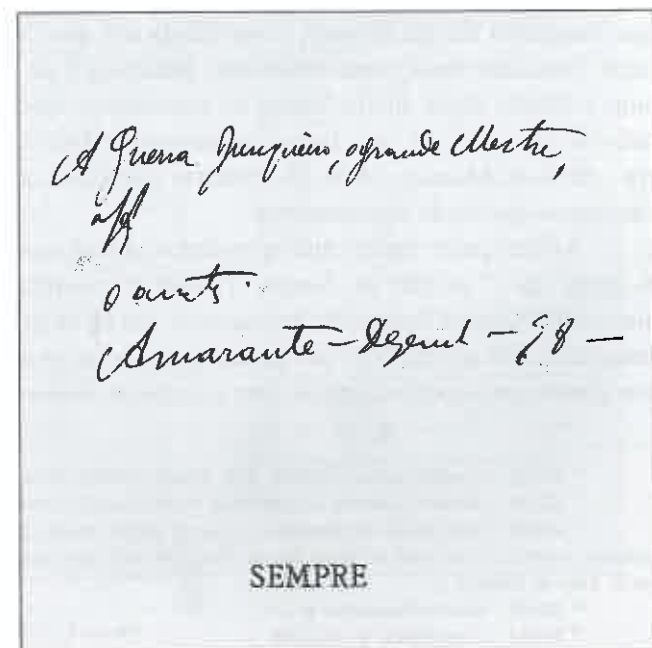 A Guerra Junqueiro, o grande Mestre,
off
o auctor.
Amarante - Dezemb - 98 -
SEMPRE